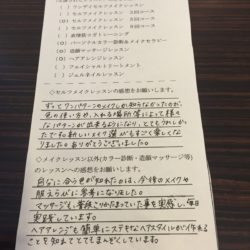 ( ) ワンデイセルフメイクレッスン
( ) セルフメイクレッスン 2回コース
( ) セルフメイクレッスン 3回コース
( ) 表情筋ヨガトレーニング
(○) パーソナルカラー診断&メイクセラピー
(○) 造顔マッサージレッスン
(○) ヘアアレンジレッスン
( ) フェイシャルトリートメント
( ) ジェルネイルレッスン
◇セルフメイクレッスンの感想をお願いします。
ずっとワンパターンのメイクしか知らなかったのが、
色の使い方や、入れる場所等によって様々
なパターンが出来るようになり、とてもうれしか
たです。新しいメイク選びもすごく楽しくな
りました。ありがとうございました。
◇メイクレッスン以外(カラー診断・造顔マッサージ等)
のレッスンへの感想をお願いします。
自分に合う色が知れたのは、今後のメイクや
服えらびに参考になりました。
マッサージも、普段こりかたまっていた事を実感し、毎日
実践しています。
ヘアアレンジも簡単にステキなヘアスタイルがイ作れる
ことを知れてとてもまんぞくしています。